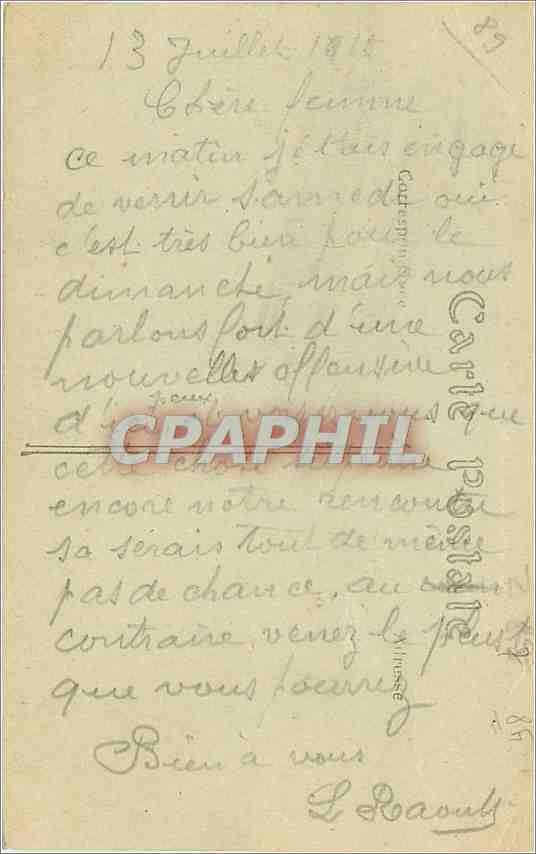 89
13 Juillet 1915
Chère femme
ce matin je t'ais engagé
de venir samedi oui
c'est très bien pour le
dimanche, mais nous
parlons fort d'une
nouvelles offensive
d'i peux que
CPAPHIL
cette chose
encore notre rencontre
sa serais tout de même
pas de chance, au
contraire, venez le plust
que vous pourrez
Bien à vous
L Raoult
Correspondance
Carte Postale
Adresse